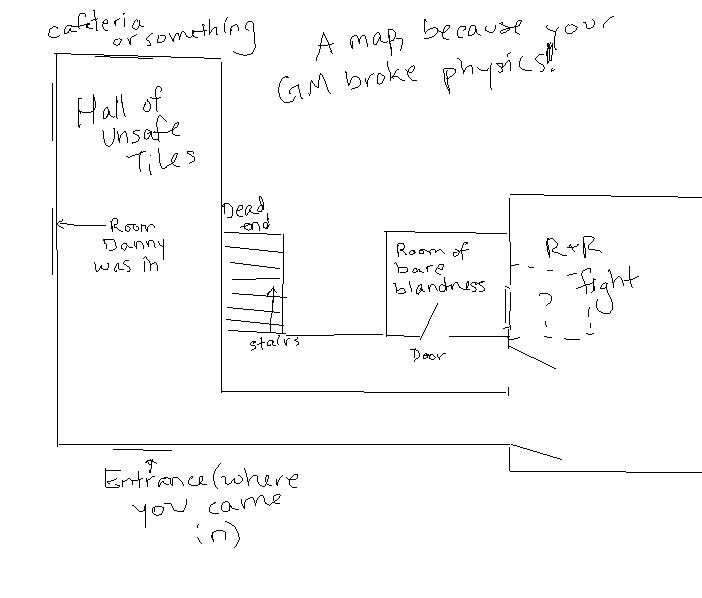 cafeteria
or something
A map, because your
GM broke physics!
Hall of
Unsafe
Tiles
Room
Danny
was in
Dead
end
stairs
Room of
bare
blandness
Door
R+R
fight
?
!
Entrance (where
you came
in)